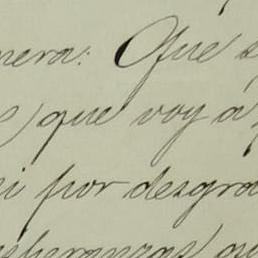 nera: Que s
que voy á
i por desgra
esperanzas qu